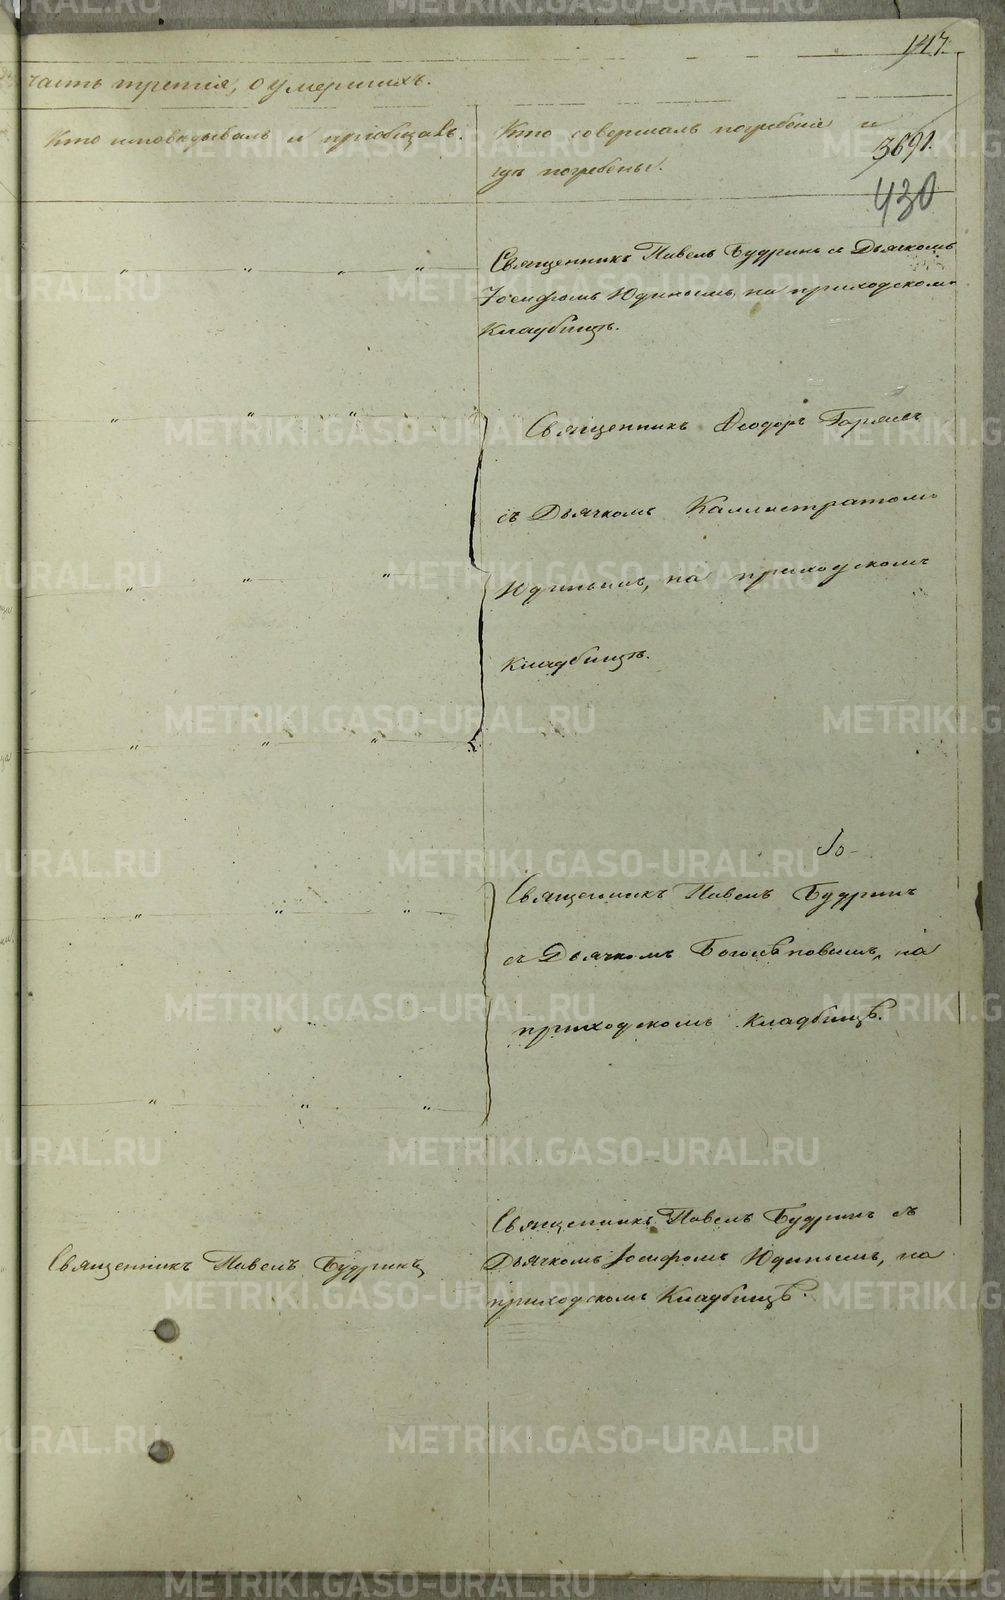 147.
часть третія, о умершихъ.
Кто исповѣдывалъ и пріобщалъ.
Кто совершалъ погребеніе и
гдѣ погребены.
3691.
430
Священникъ Павелъ Будринъ съ Дьячкомъ
Іосифомъ Юдинымъ, на приходскомъ
Кладбищѣ.
Священникъ Ѳеодоръ
съ Дьячкомъ Каллистратомъ
Юдинымъ, на приходскомъ
Кладбищѣ.
Священникъ Павелъ Будринъ
съ Дьячкомъ Боголѣповымъ, на
приходскомъ кладбищѣ.
Священникъ Павелъ Будринъ съ
Священникъ Павелъ Будринъ
Дьячкомъ Іосифомъ Юдинымъ, на
приходскомъ Кладбищѣ.
METRIKI.GASO-URAL.RU